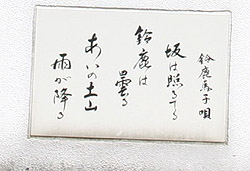 鈴鹿馬子唄
坂は照る〻
鈴鹿は
曇る
あいの土山
雨が降る